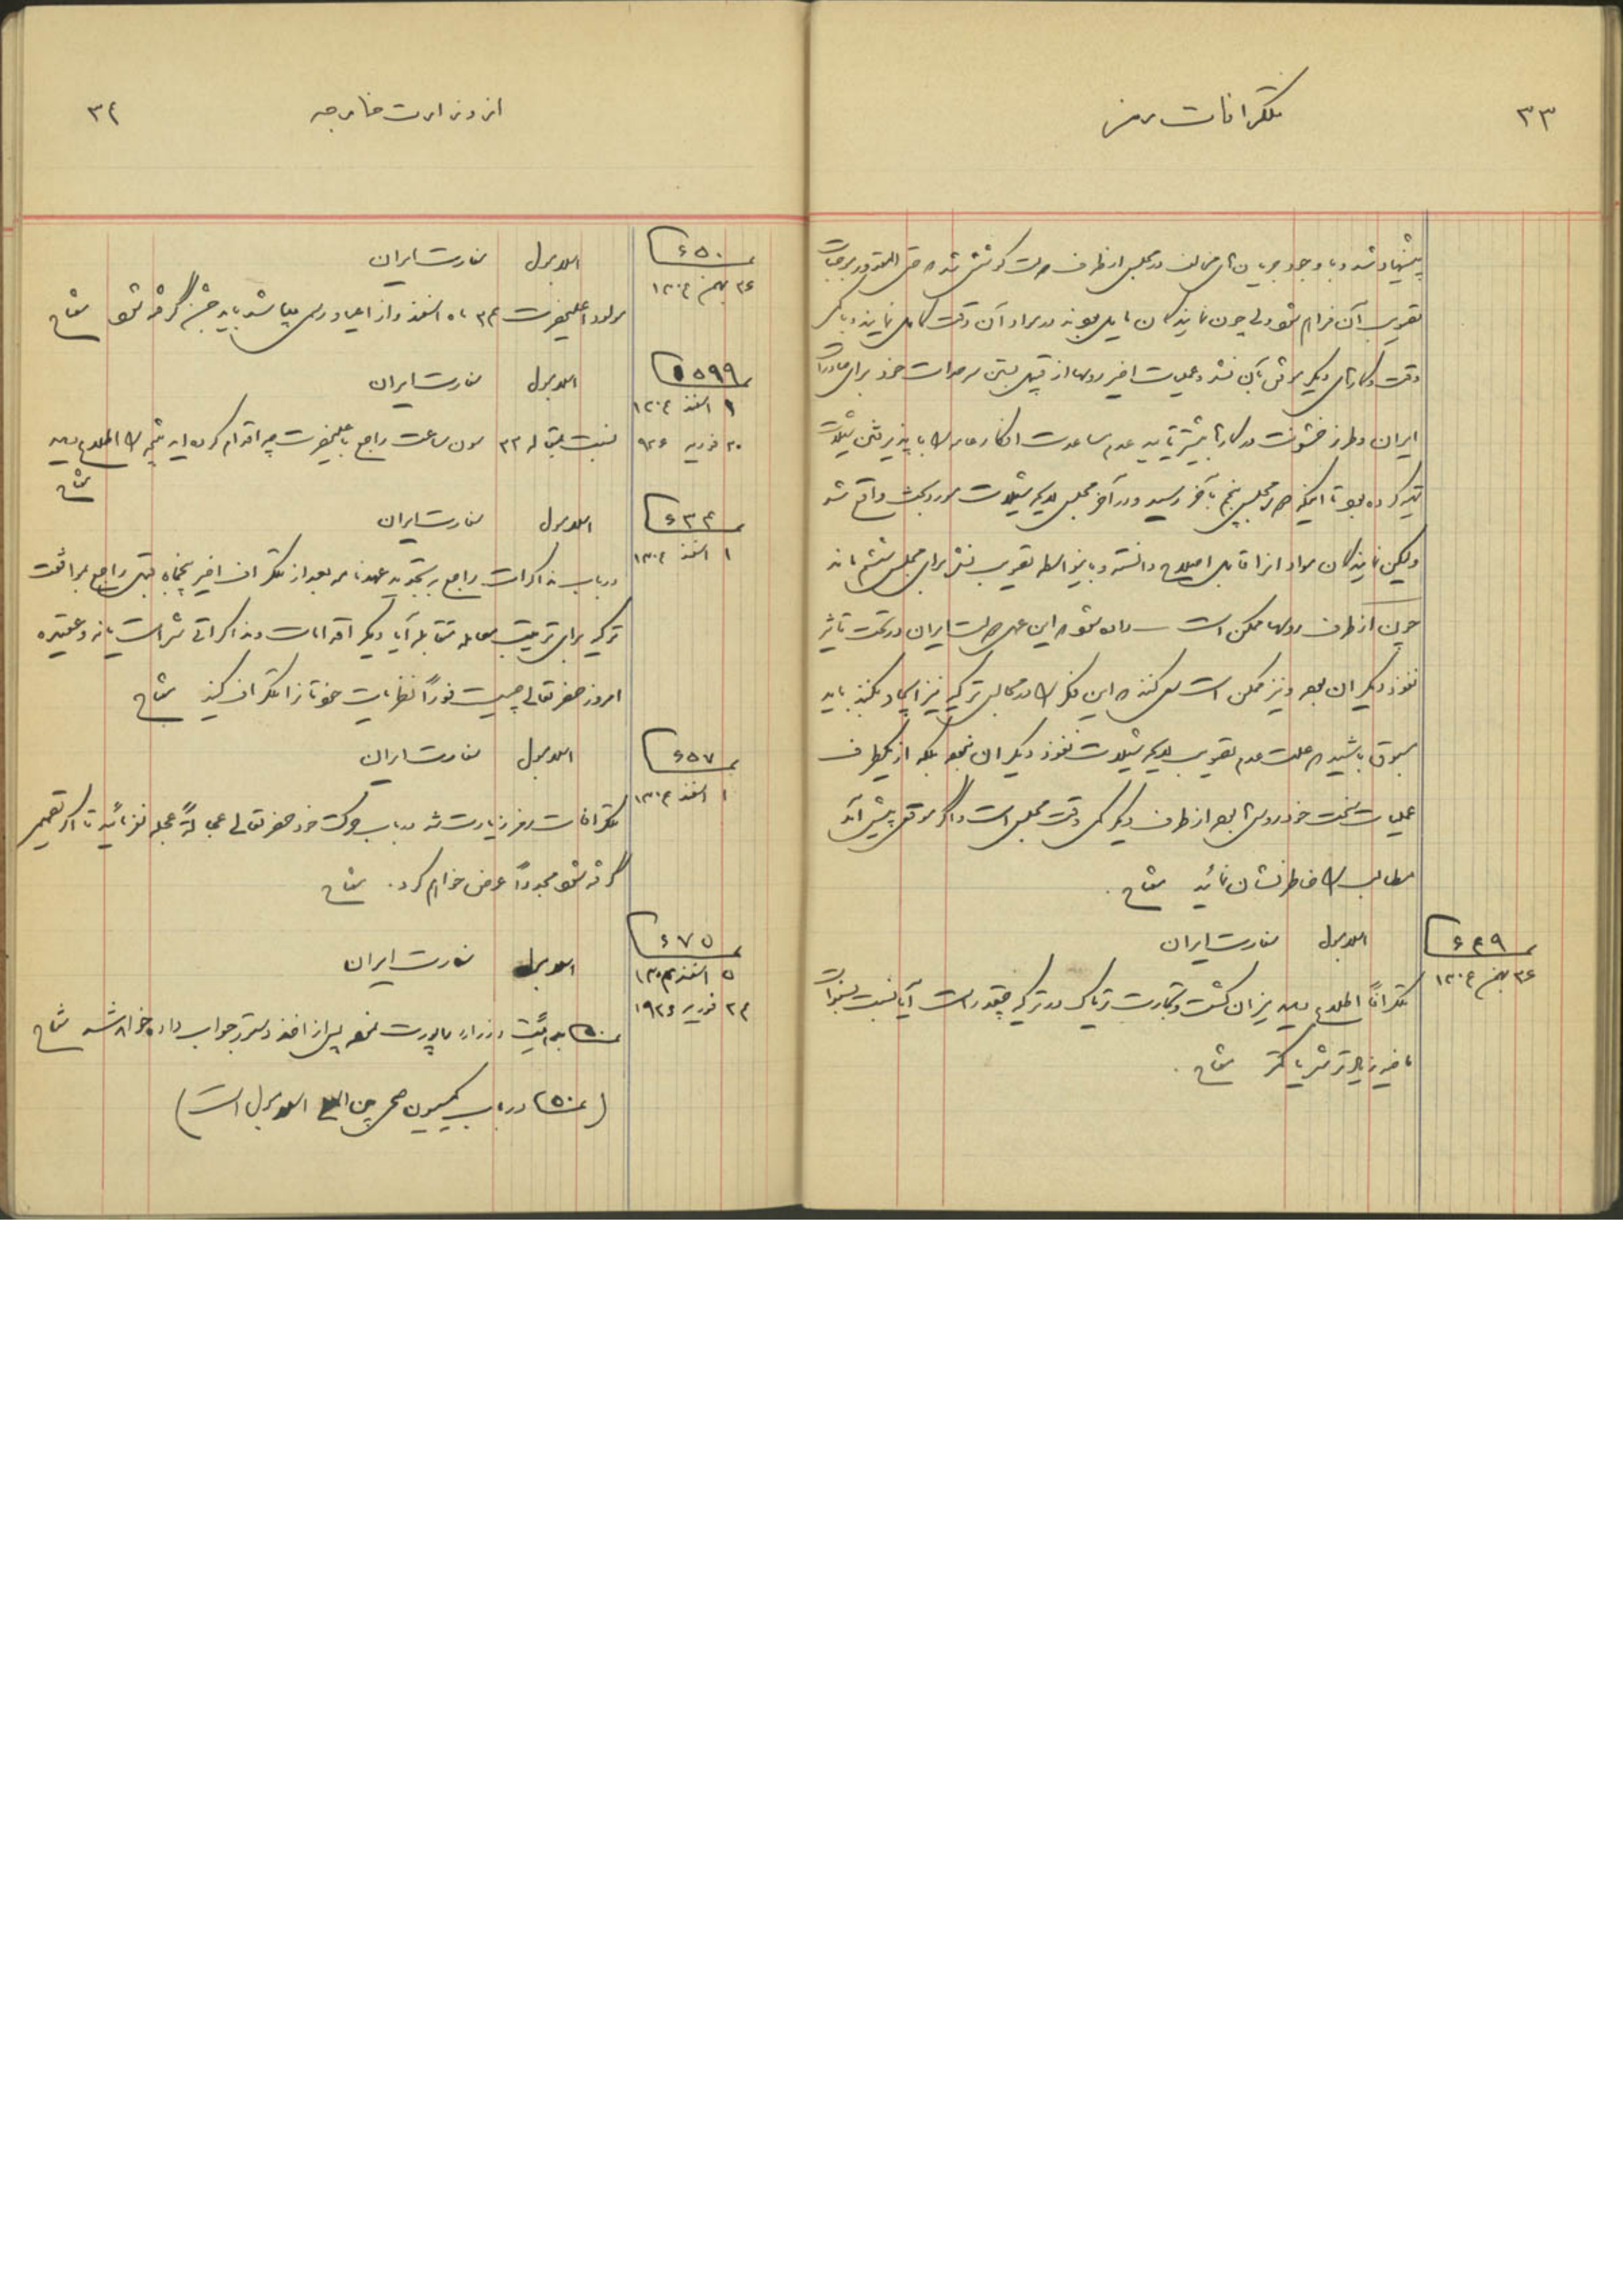 ۳۳
تلگرافات رمز
پیشنهاد شد و با وجود جریان های مخالف در مجلس از طرف دولت کوشش شد که حتی المقدور موجبات
تصویب آن فراهم شود ولی چون نمایندگان مایل بودند در مواد آن دقت کامل نمایند و با کمی
وقت و کارهای دیگر موفق بآن نشد و عملیات اخیر روسها از قبیل بستن سرحدات خود برای صادرات
ایران و طرز خشونت در کارها بیشتر تایید عدم مساعدت افکار عامه را با پذیرفتن شیلات
تیره کرده بود تا اینکه دوره مجلس پنجم بآخر رسید و در آخر مجلس لایحه شیلات مورد بحث واقع شد
ولیکن نمایندگان مواد انرا قابل اصلاح دانسته و باینواسطه تصویب نشد برای مجلس ششم ماند
چون از طرف روسها ممکن است داده شود که این عمل دولت ایران در تحت تاثیر
نفوذ دیگران بوده و نیز ممکن است سعی کنند که این فکر را در محافل ترکیه نیز ایجاد بکنند باید
مسبوق باشید که علت عدم تصویب لایحه شیلات نفوذ دیگران نبوده بلکه از یکطرف
عملیات سخت خود روسها بوده از طرف دیگر کمی وقت مجلس است و اگر موقعی پیش آید
مطالب را خاطرنشان نمائید
۶۴۹
۲۶ بهمن ۱۳۰۴
اسلامبول سفارت ایران
تلگرافاً اطلاع دهید میزان کشت و تجارت تریاک در ترکیه چقدر است آیا نسبت بسنوات
ماضیه زیادتر شده یا کمتر
۳۴
از وزارت خارجه
۶۵۰
۲۶ بهمن ۱۳۰۴
اسلامبول سفارت ایران
مولود اعلیحضرت ۲۴ ماه اسفند و از اعیاد رسمی میباشد باید جشن گرفته شود
۵۹۹
۱ اسفند ۱۳۰۴
۲۰ فوریه ۹۲۶
اسلامبول سفارت ایران
نسبت بقباله ۲۲ ساعت راجع باعلیحضرت چه اقدام کرده اید نتیجه را اطلاع دهید
۶۳۴
۱ اسفند ۱۳۰۴
اسلامبول سفارت ایران
در باب مذاکرات راجع به تجدید عهدنامه بعد از تلگراف اخیر پنجماه قبل راجع بموافقت
ترکیه برای ترتیب معامله متقابله آیا دیگر اقدامات و مذاکراتی شده است یا نه و عقیده
امروز حضرتعالی چیست فوراً نظریات خودتانرا تلگراف کنید
۶۵۷
۱ اسفند ۱۳۰۴
اسلامبول سفارت ایران
تلگرافات رمز زیارت شد در باب حرکت خود حضرتعالی عجالةً عجله نفرمائید تا اگر تصمیم
گرفته شود مجدداً عرض خواهم کرد.
۶۷۵
۵ اسفند ۱۳۰۴
۲۴ فوریه ۱۹۲۶
اسلامبول سفارت ایران
۵۰ بهیئت وزراء راپورت نموده پس از اخذ دستور جواب داده خواهد شد
(۵۰ در باب کمیسیون اسلامبول است)